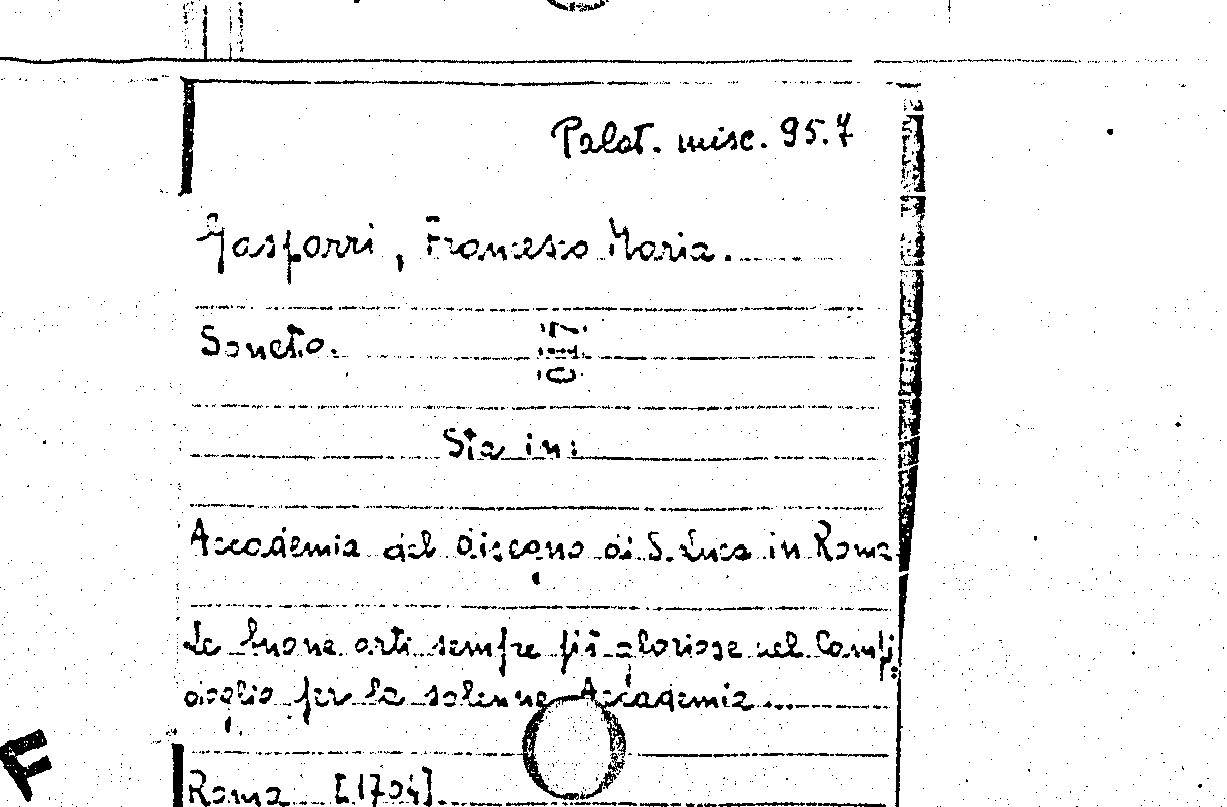 Palat. misc. 95.7
Gasparri, Francesco Maria.
Sonetto.
Sta in:
Accademia del Disegno di S. Luca in Roma
Le buone arti sempre più gloriose nel Campi
doglio per la solenne Accademia...
Roma [1704].
F